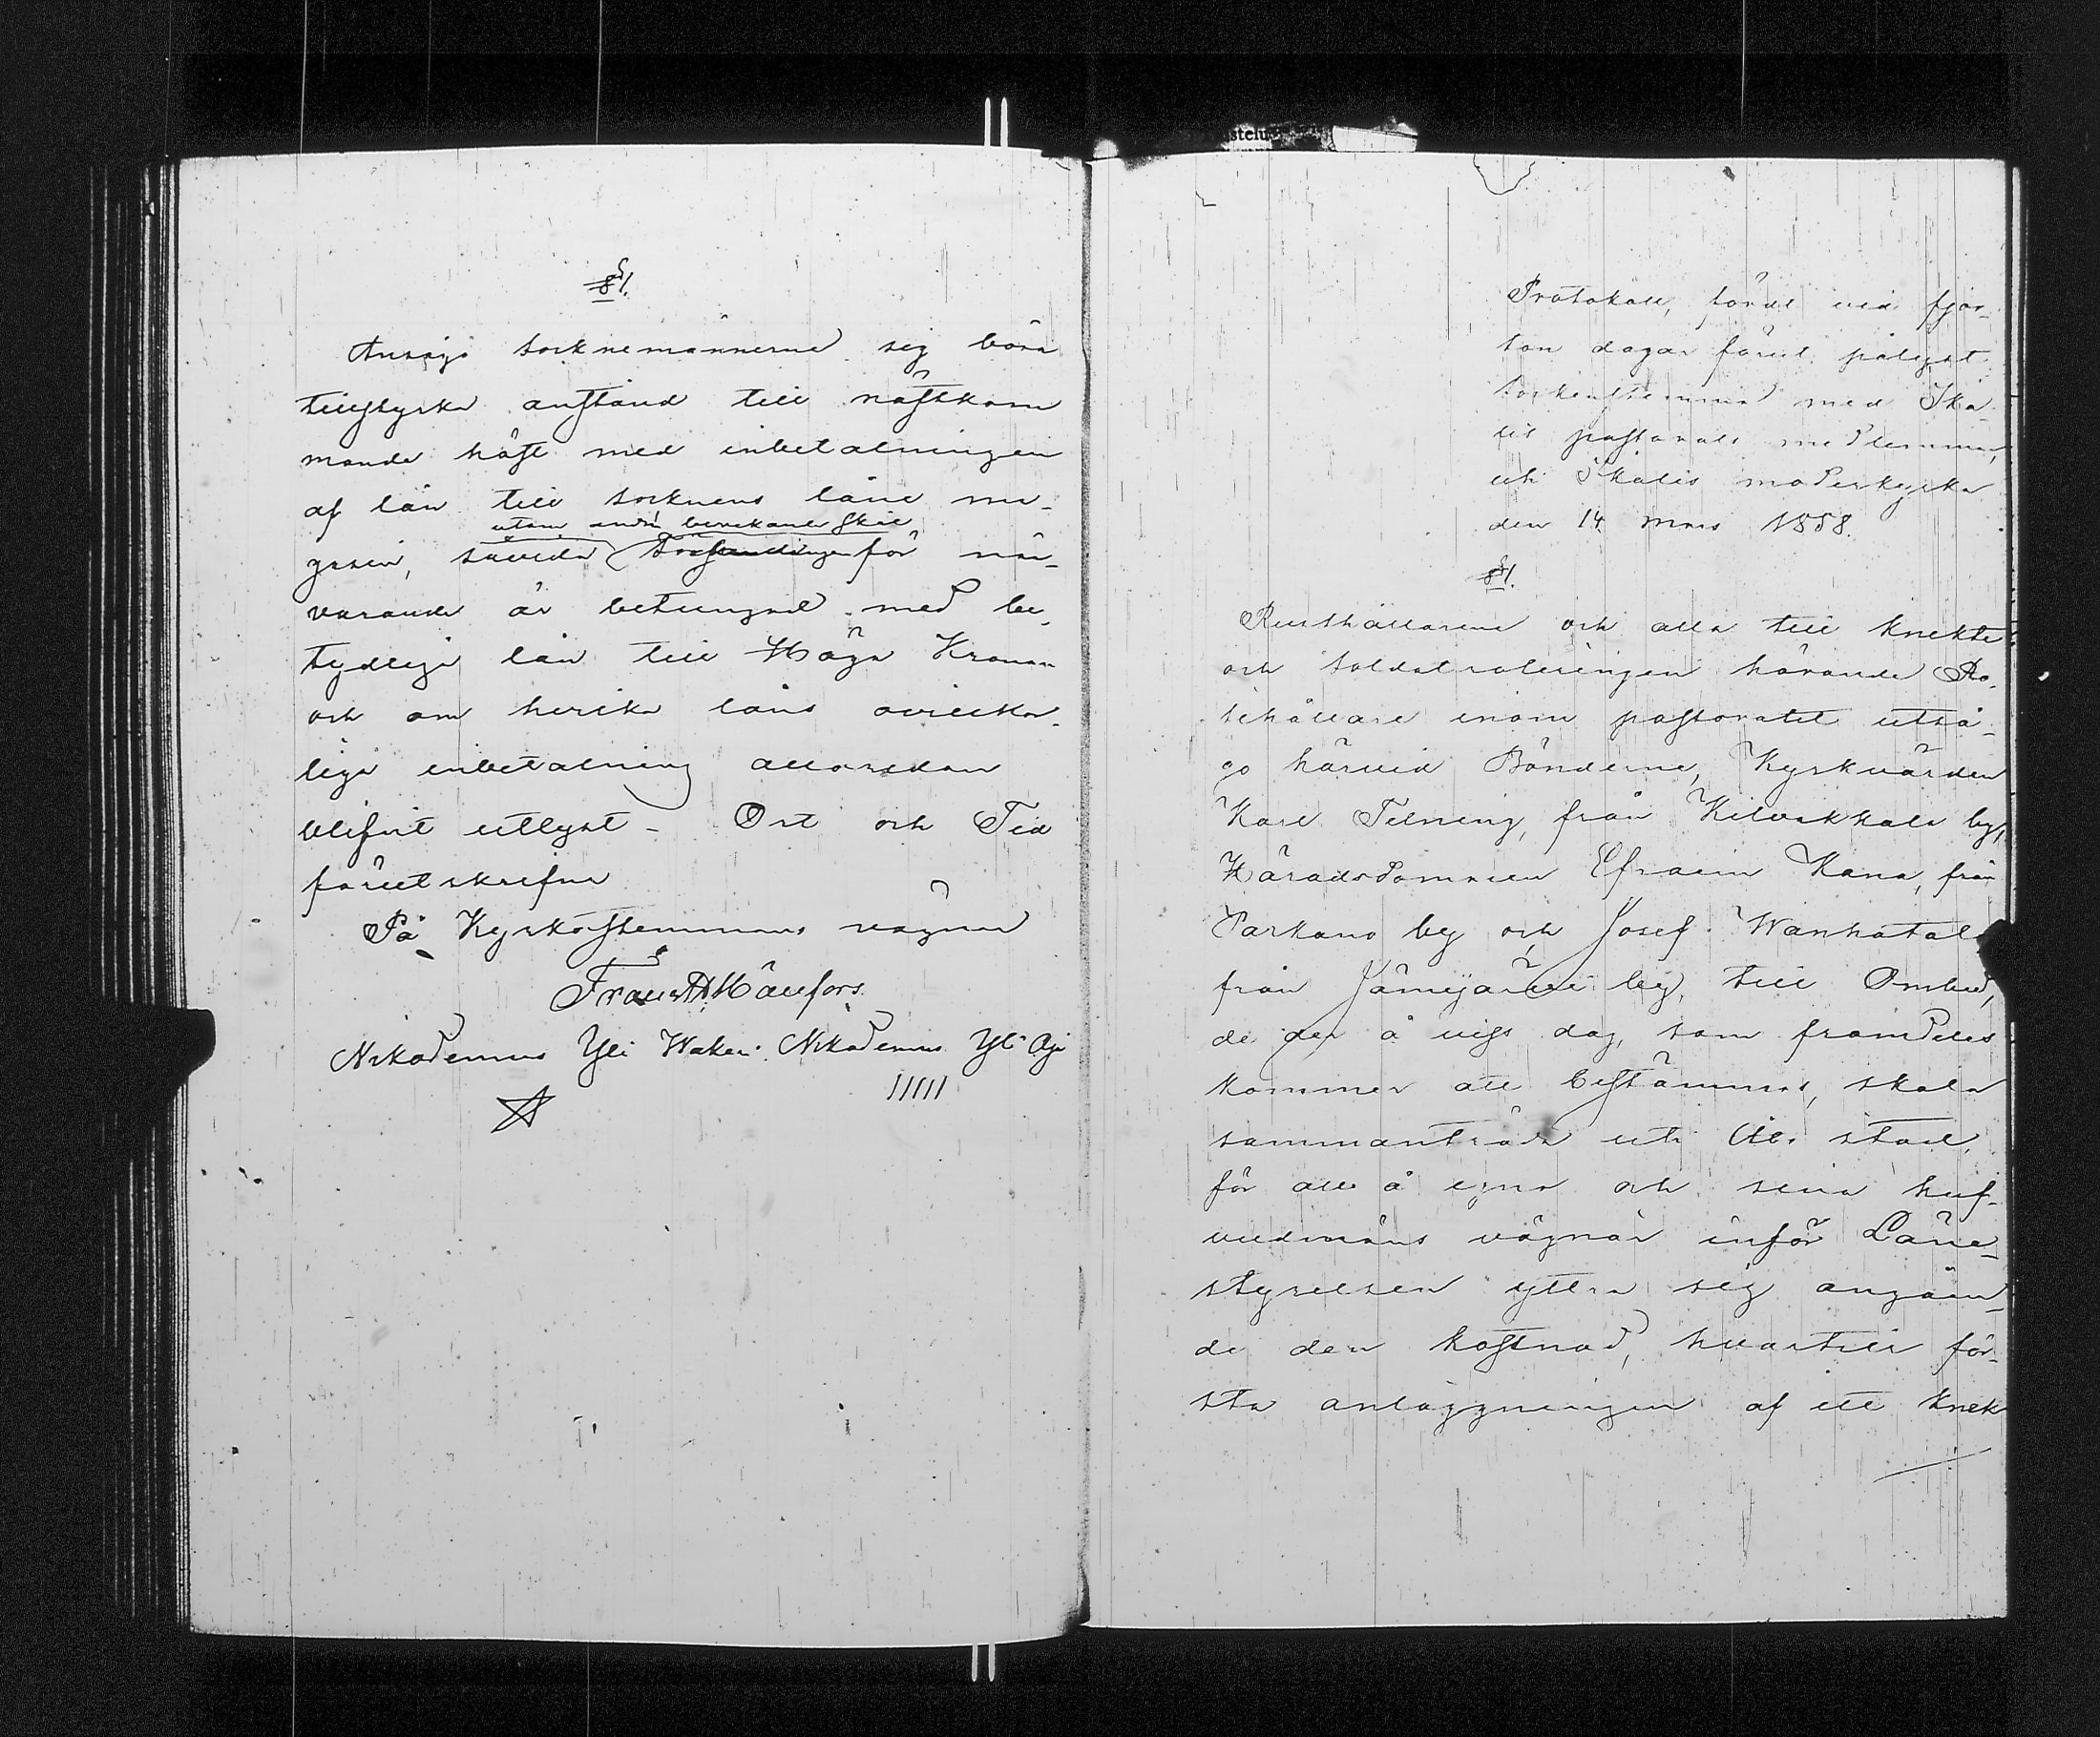 §1.
Ansågo socknemännerne sig böra
tillstyrka anstånd till nästkom
mande höst med inbetalningen
af lån till socknens låne ma-
utom andra berikande skäl
gasin, såvida för när-
varande är betungad med be-
tydliga lån till Höga Kronan
och om hvilka låns ovillkor-
liga inbetalning allaredan
blifvit utlyst - Ort och Tid
förutskrifne
På Kyrkostemmans vägnar
Frans H Hällfors
Nikodemus Yli Wakeri. Nikodemus Yli Äijö
Protokoll, fördt vid fjor-
ton dagar förut pålyst
sockenstemma med Ika-
lis pastorats medlemmar,
uti Ikalis moderkyrka
den 14 Mars 1858.
§1.
Rusthållarene och alla till knekte
och soldatroteringen hörande Ro-
tehållare inom pastoratet utså-
go härvid Bönderne, Kyrkvärden
Karl Telning, från Kilvakkala by,
Häradsdomaren Efraim Kana, från
Parkano by och Josef Wanhatalo
från Jämijärvi by, till Ombud,
de der å viss dag, som framdeles
kommer att bestämmas, skola
sammanträda uti Åbo stad,
för att å egna och sina huf-
vudmäns vägnar inför Läne-
styrelsen yttra sig angåen-
de den kostnad, hvartill för-
sta anläggningen af ett knek